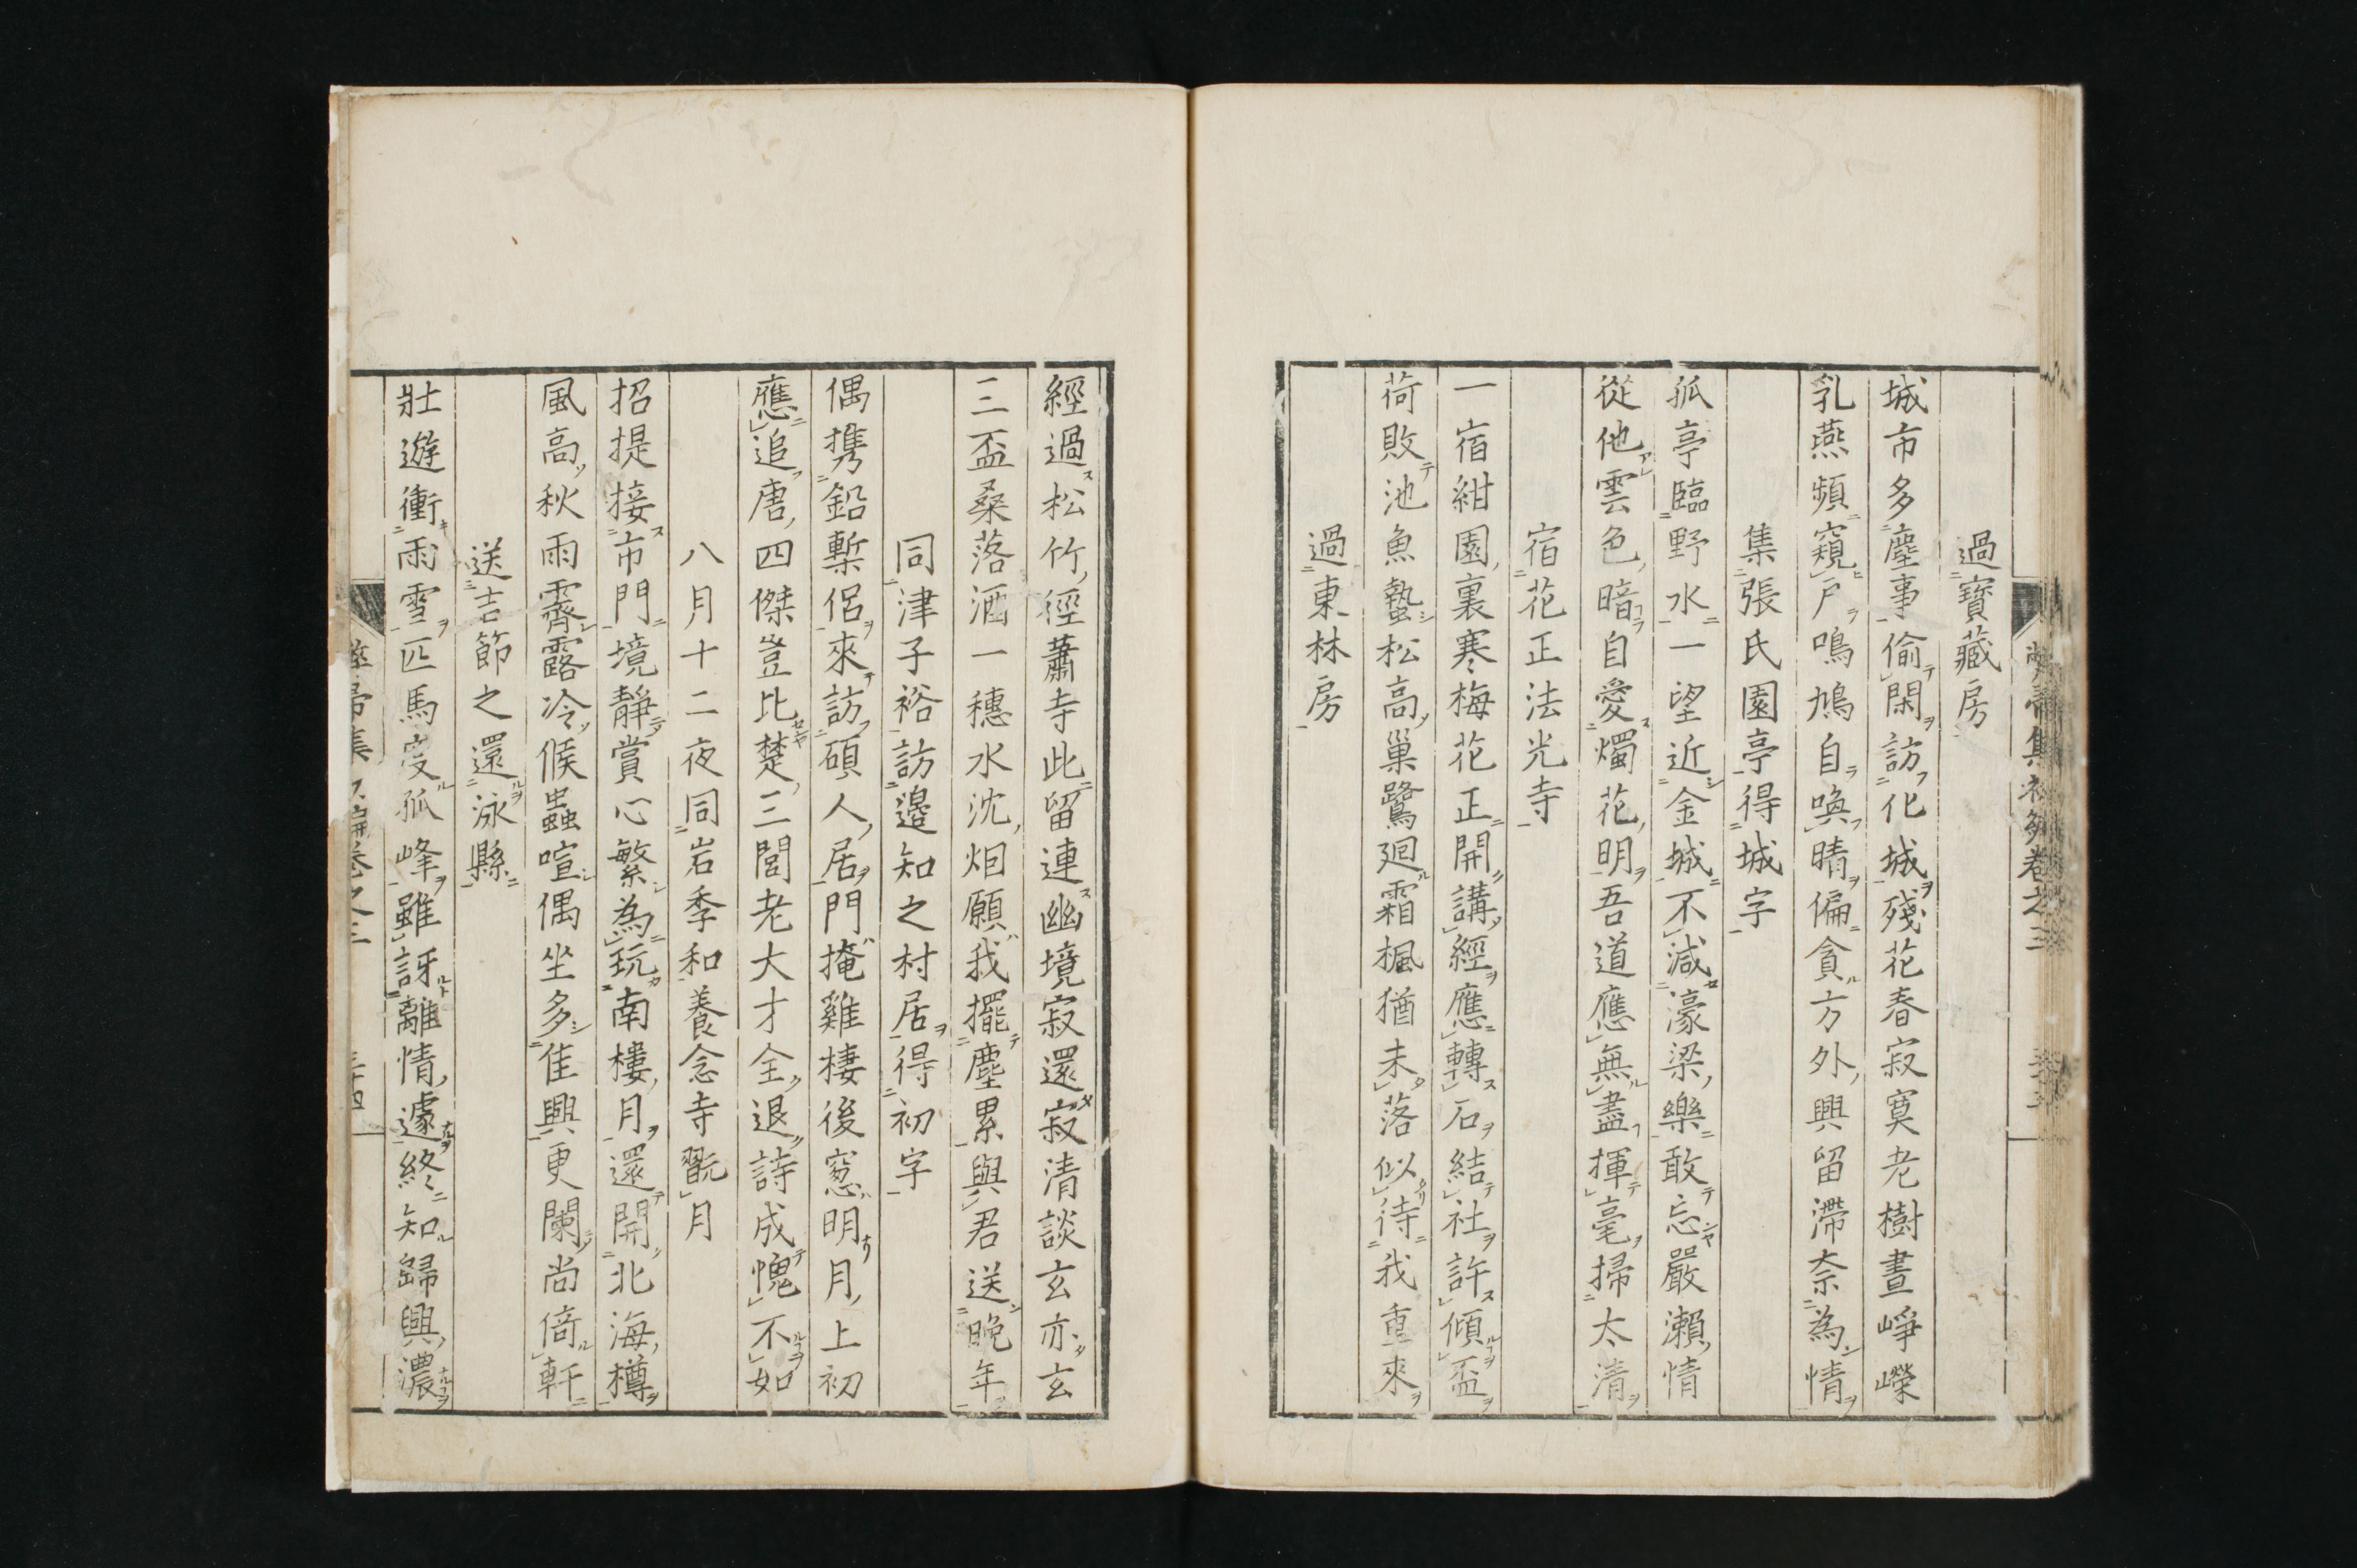 過寶藏房
城市多塵事偷閑訪化城殘花春寂寞老樹晝崢嶸
乳燕頻窺戶鳴鳩自喚晴偏貪方外興留滯柰為情
集張氏園亭得城字
孤亭臨野水一望近金城不減濠梁樂敢忘嚴瀨情
從他雲色暗自愛燭花明吾道應無盡揮毫掃太清
宿花正法光寺
一宿紺園裏寒梅花正開講經應轉石結社許傾盃
荷敗池魚蟄松高巢鷺廻霜楓猶未落似待我重來
過東林房
經過松竹徑蕭寺此留連幽境寂還寂清談玄亦玄
三盃桑落酒一穗水沈烟願我擺塵累與君送晚年
同津子裕訪邉知之村居得初字
偶携鉛槧侶來訪碩人居門掩雞棲後窓明月上初
應追唐四傑豈比楚三閭老大才全退詩成愧不如
八月十二夜同岩季和養念寺翫月
招提接市門境靜賞心繁為玩南樓月還開北海樽
風高秋雨霽露冷候蟲喧偶坐多佳興更闌尚倚軒
送吉節之還泳縣
壯遊衝雨雪匹馬度孤峰雖訝離情遽終知歸興濃